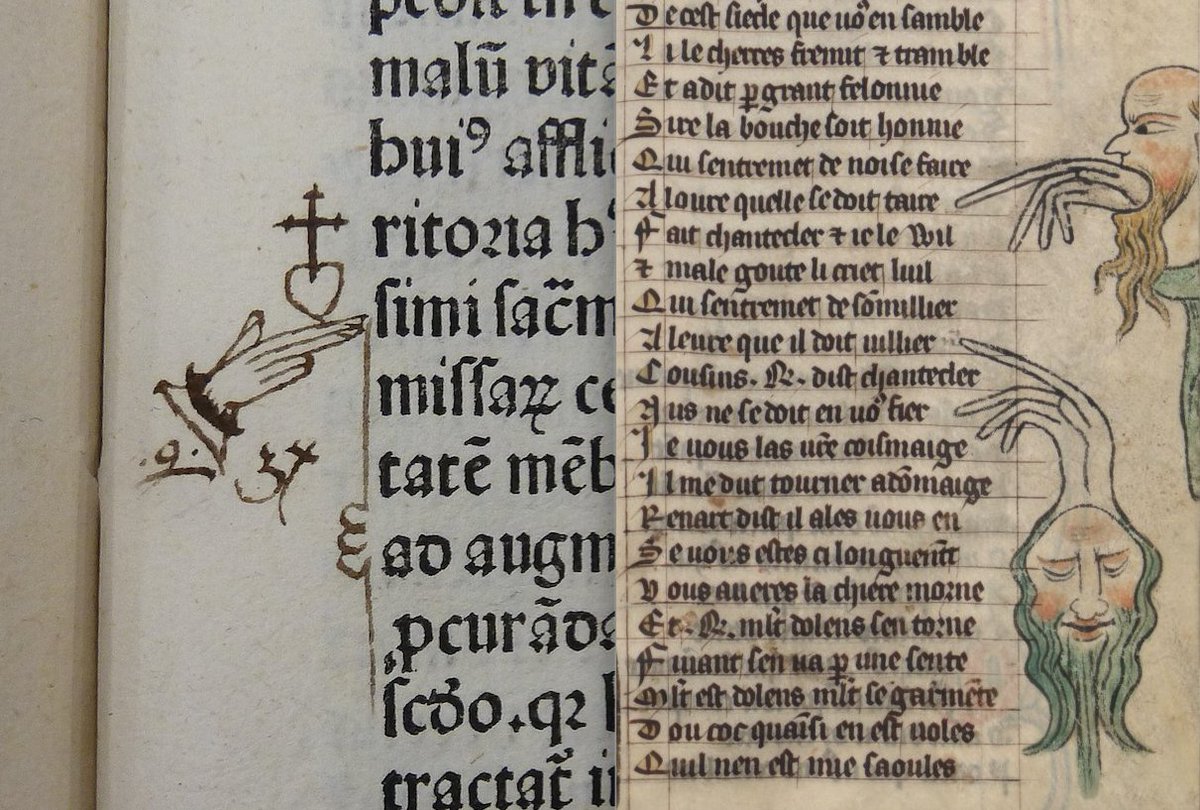 malū vita
huiꝰ affli
ritoꝛia h
ſimi ſac̄m
miſſaꝝ ce
tatē mēb
ad augm
ꝓcurāda
ſcđo.qꝛ
tractat̄ i
De ceſt ſiecle que uoꝰ en ſamble
Tile cherres fremiſt ⁊ tramble
Et a dit ꝑ grant felonnie
Sire la bouche ſoit honnie
Qui ſentremet de noiſe faire
A loure quelle ſe doit taire
Fait chantecler ⁊ ie le Wil
⁊ male goute li criet luil
Qui ſentremet de ſōmillier
A leure que il doit uillier
Couſins .R. diſt chantecler
Nus ne ſe doit en uoꝰ fier
Je uous las ur̄e coiſmaige
Il me dut tourner a dōmaige
Renart diſt il ales uous en
Se uous eſtes ci longuem̄t
Vous aueres la chiere morne
Et .R. ml̄t dolens ſen torne
Fuiant ſen ua ꝑ une ſente
Ml̄t eſt dolens ml̄t ſe garmēte
Dou coc quauſi en eſt uoles
Quil nen eſt mie ſaoules